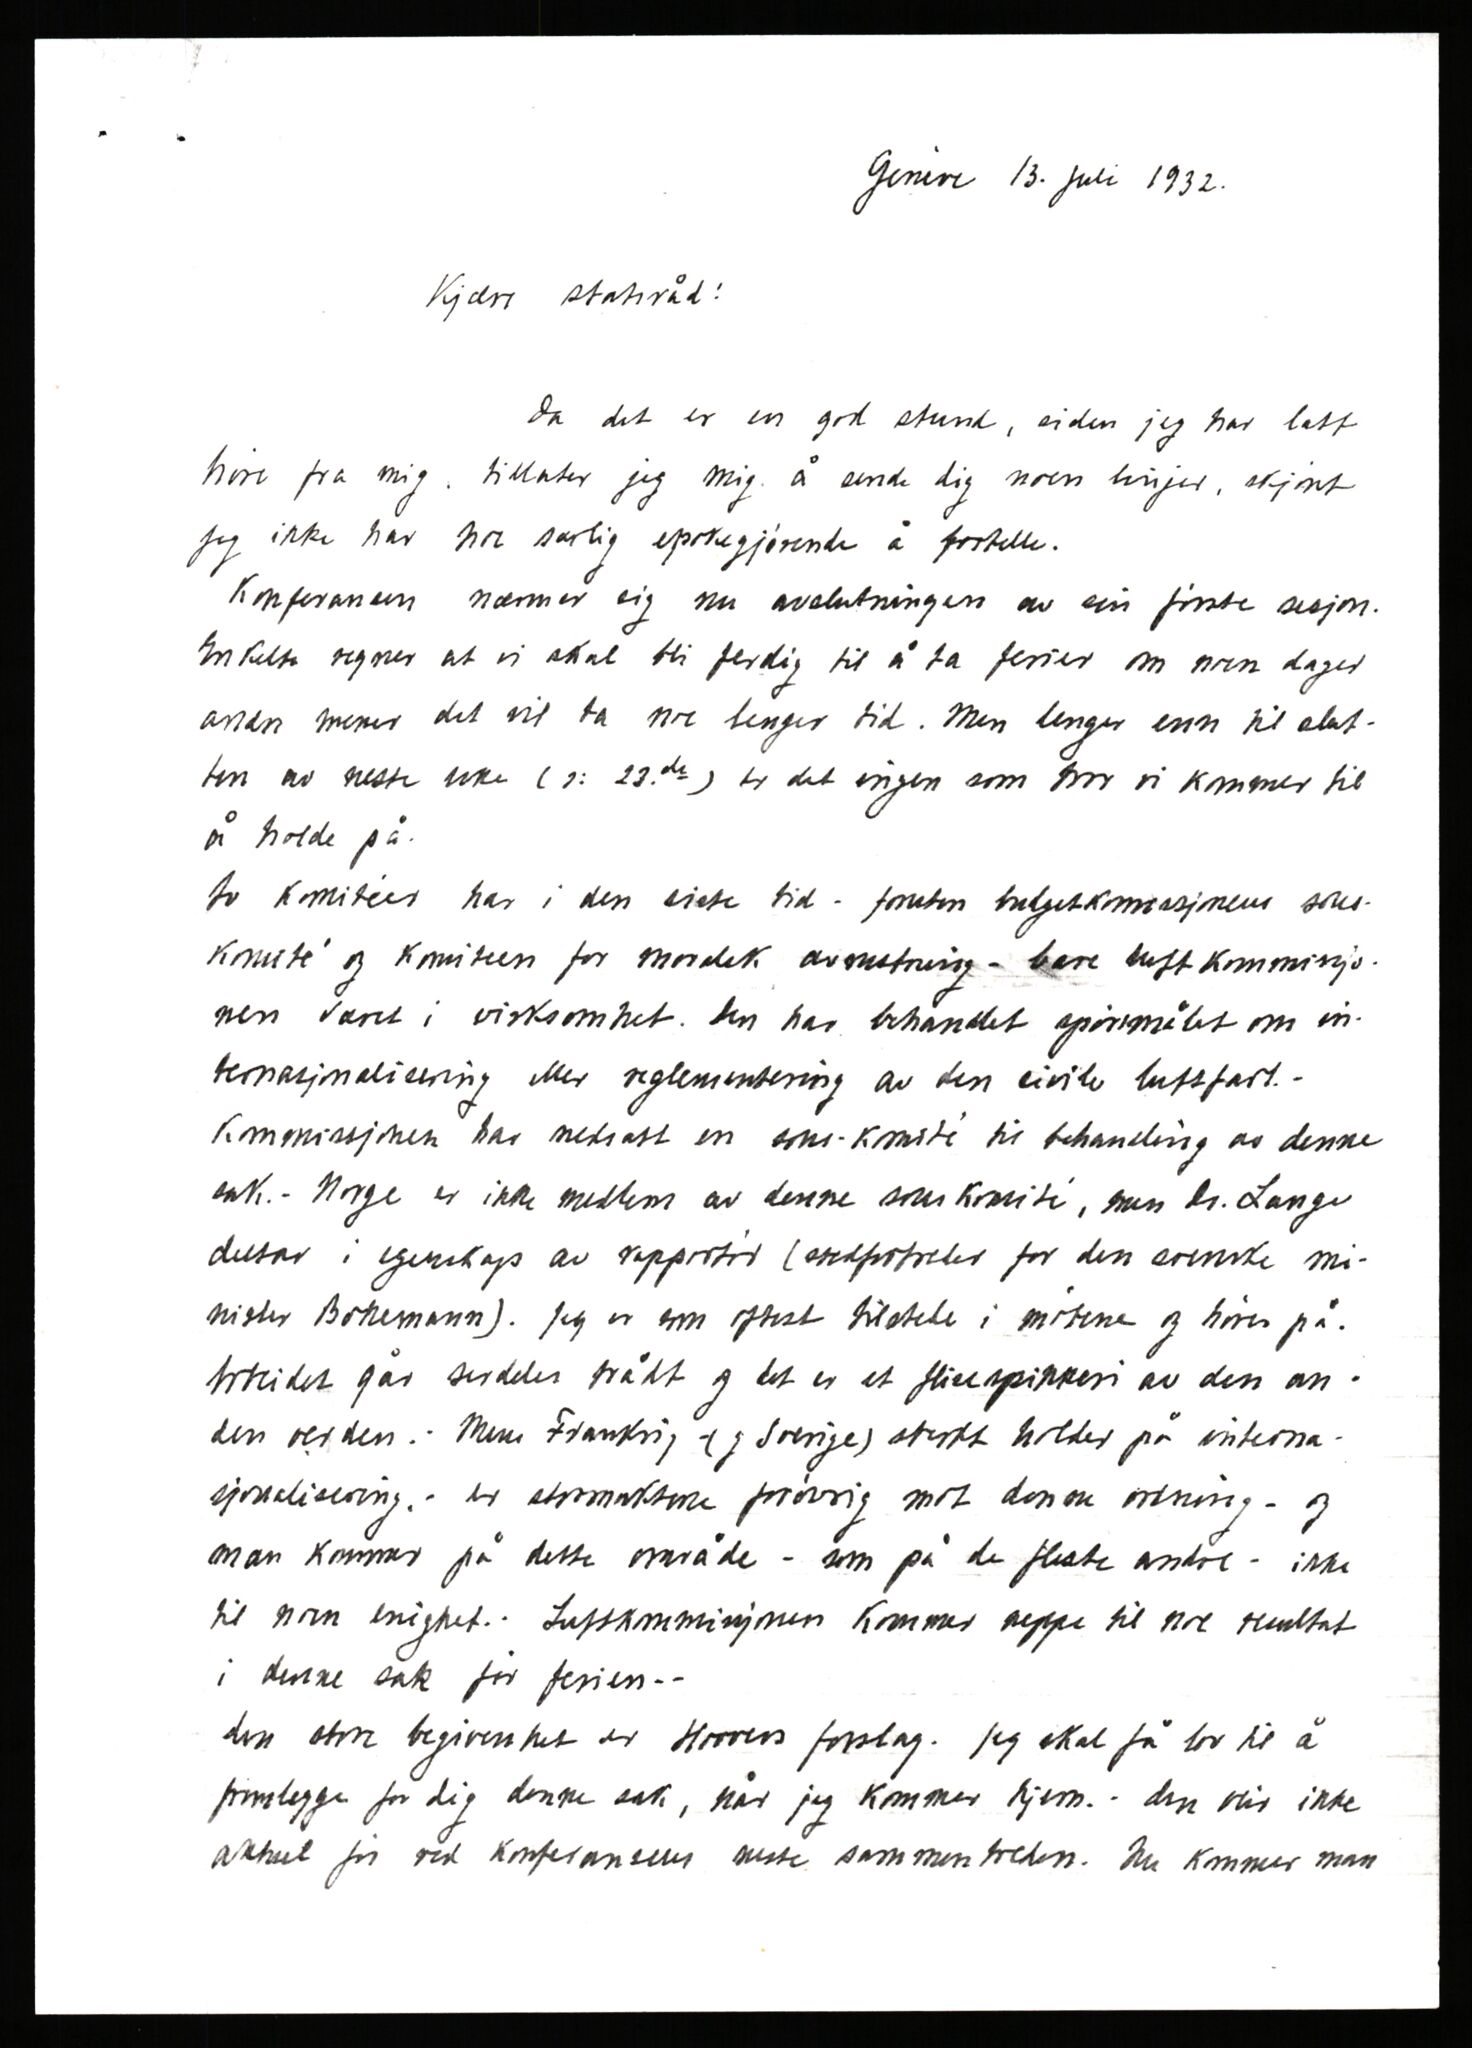 Genève 13. juli 1932.
Kjære statsråd!
Da det er en god stund, siden jeg har latt
høre fra mig, tillater jeg mig å sende dig noen linjer, skjønt
jeg ikke har noe særlig epokegjørende å fortelle.
Konferansen nærmer sig nu avslutningen av sin første sesjon.
Enkelte regner at vi skal bli ferdig til å ta ferier om noen dager
andre mener det vil ta noe lenger tid. Men lenger enn til slut-
ten av neste uke (ɔ: 23.de) er det ingen som tror vi kommer til
å holde på.
Av komitéer har i den siste tid - foruten budgetkommisjonens sous-
komité og komiteen for moralsk avrustning - bare luftkommisjo-
nen været i virksomhet. Den har behandlet spørsmålet om in-
ternasjonalisering eller reglementering av den civile luftfart. -
Kommissjonen har nedsatt en sous-komité til behandling av denne
sak. - Norge er ikke medlem av denne souskomité, men Dr. Lange
deltar i egenskap av rapportør (stedfortreder for den svenske mi-
nister Bohemann). Jeg er som oftest tilstede i møtene og hører på.
Arbeidet går serdeles trått og det er et flisespikkeri av den an-
den verden. - Mens Frankrig - (og Sverige) sterkt holder på interna-
sjonalisering, - er stormaktene forøvrig mot denne ordning - og
man kommer på dette område - som på de fleste andre - ikke
til noen enighet. - Luftkommisjonen kommer neppe til noe resultat
i denne sak før ferien. - -
Den store begivenhet er Hoovers forslag. Jeg skal få lov til å
fremlegge for dig denne sak, når jeg kommer hjem. - Den blir ikke
aktuel før ved konferansens neste sammentreden. Nu kommer man